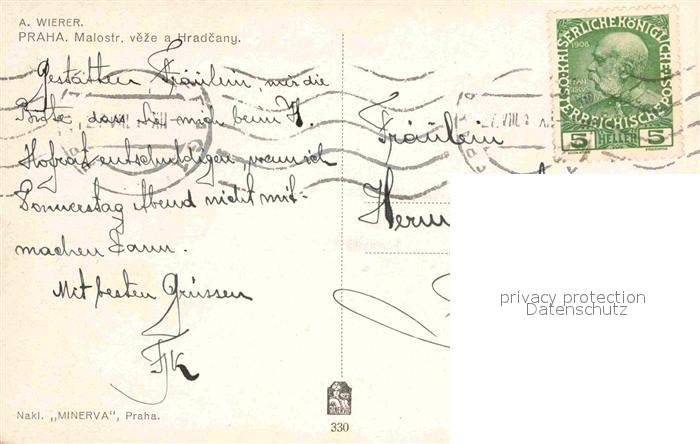 A. WIERER.
PRAHA. Malostr. věže a Hradčany.
Gestatten, Fräulein, mir die
Bitte, dass Sie mich beim H.
Hofrat entschuldigen, wenn ich
Donnerstag Abend nicht mit-
machen kann.
Mit besten Grüssen
FJK
Nakl. „MINERVA", Praha.
330
MINERVA
KAISERLICHE KÖNIGLICHE
ÖSTERREICHISCHE POST
1908
5 HELLER 5
27. VIII.
Fräulein
Herm
privacy protection
Datenschutz